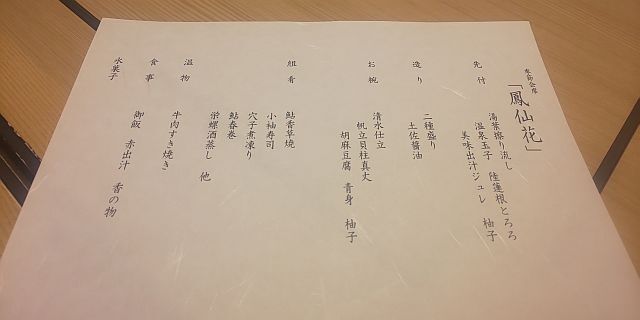 季節会席
「鳳仙花」
先付
湯葉擦り流し
温泉玉子 陸蓮根とろろ
美味出汁ジュレ 柚子
造り
二種盛り
土佐醤油
お椀
清水仕立
帆立貝柱真丈
胡麻豆腐 青身 柚子
組肴
鮎香草焼
小袖寿司
穴子煮凍り
鮎春巻
栄螺酒蒸し 他
温物
牛肉すき焼き
食事
御飯 赤出汁 香の物
水菓子